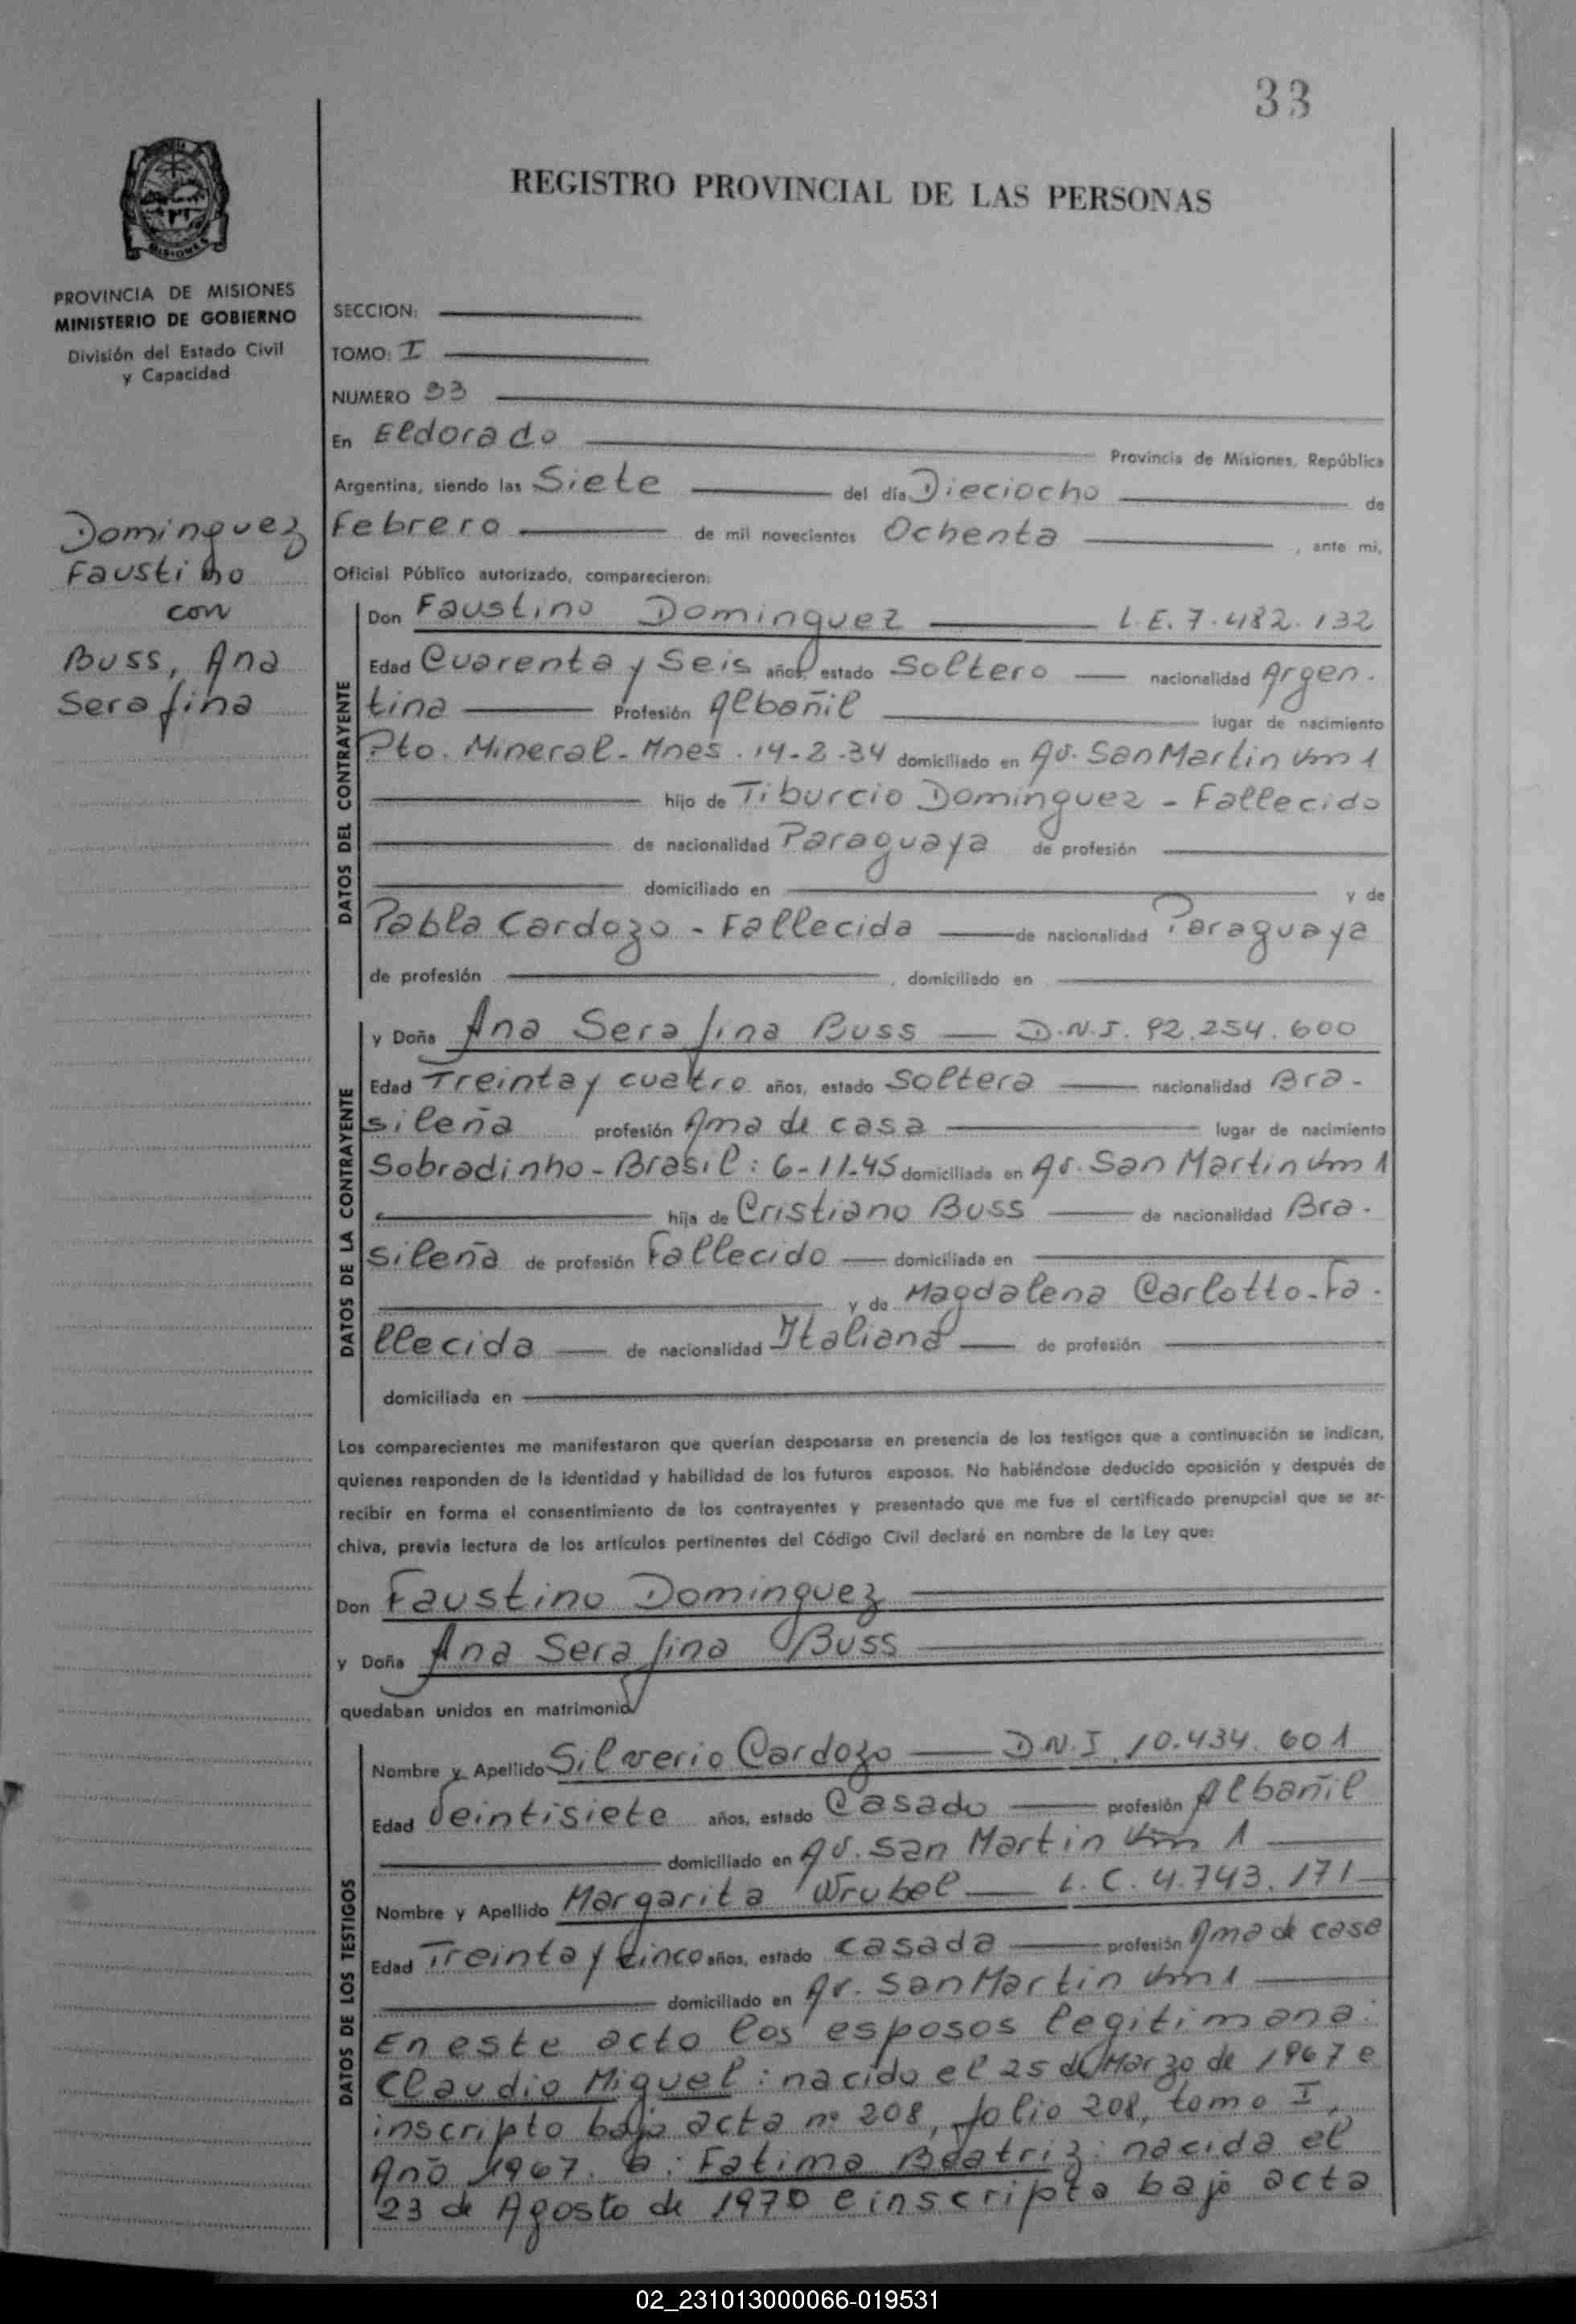 33
REGISTRO PROVINCIAL DE LAS PERSONAS
MISIONES
PROVINCIA DE MISIONES
MINISTERIO DE GOBIERNO
División del Estado Civil
y Capacidad
SECCION:
TOMO: I
NUMERO 33
En Eldorado
Provincia de Misiones, República
Argentina, siendo las Siete del día Dieciocho de
Febrero de mil novecientos Ochenta , ante mi,
Oficial Público autorizado, comparecieron:
Dominguez
Faustino
con
Buss, Ana
Serafina
DATOS DEL CONTRAYENTE
Don Faustino Dominguez L.E. 7.482.132
Edad Cuarenta y Seis años, estado Soltero nacionalidad Argen-
tina Profesión Albañil lugar de nacimiento
Pto. Mineral - Mnes. 14-2-34 domiciliado en Av. San Martin Km 1
hijo de Tiburcio Dominguez - Fallecido
de nacionalidad Paraguaya de profesión
domiciliado en y de
Pabla Cardozo - Fallecida de nacionalidad Paraguaya
de profesión , domiciliado en
DATOS DE LA CONTRAYENTE
y Doña Ana Serafina Buss D.N.I. 92.254.600
Edad Treinta y cuatro años, estado Soltera nacionalidad Bra-
sileña profesión Ama de casa lugar de nacimiento
Sobradinho - Brasil: 6-11-45 domiciliada en Av. San Martin Km 1
hija de Cristiano Buss de nacionalidad Bra-
sileña de profesión Fallecido domiciliada en
y de Magdalena Carlotto - Fa-
llecida de nacionalidad Italiana de profesión
domiciliada en
Los comparecientes me manifestaron que querían desposarse en presencia de los testigos que a continuación se indican,
quienes responden de la identidad y habilidad de los futuros esposos. No habiéndose deducido oposición y después de
recibir en forma el consentimiento de los contrayentes y presentado que me fue el certificado prenupcial que se ar-
chiva, previa lectura de los artículos pertinentes del Código Civil declaré en nombre de la Ley que:
Don Faustino Dominguez
y Doña Ana Serafina Buss
quedaban unidos en matrimonio
DATOS DE LOS TESTIGOS
Nombre y Apellido Silverio Cardozo D.N.I. 10.434.601
Edad Veintisiete años, estado Casado profesión Albañil
domiciliado en Av. San Martin Km 1
Nombre y Apellido Margarita Wrubel L.C. 4.743.171
Edad Treinta y Cinco años, estado casada profesión Ama de casa
domiciliado en Av. San Martin Km 1
En este acto los esposos legitiman a:
Claudio Miguel: nacido el 25 de Marzo de 1967 e
inscripto bajo acta nº 208, folio 208, tomo I,
Año 1967. a: Fatima Beatriz: nacida el
23 de Agosto de 1970 e inscripta bajo acta
02_231013000066-019531